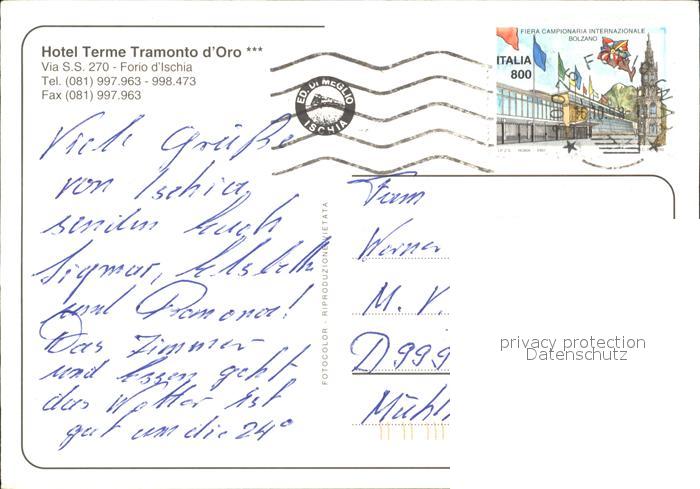 Hotel Terme Tramonto d'Oro ***
Via S.S. 270 - Forio d'Ischia
Tel. (081) 997.963 - 998.473
Fax (081) 997.963
FIERA CAMPIONARIA INTERNAZIONALE
BOLZANO
ITALIA
800
ED. DI MEGLIO
ISCHIA
Viele Grüße
von Ischia
senden Euch
Sigmar, Elsbeth
und Ramona!
Das Zimmer
und Essen geht
das Wetter ist
gut um die 24°
FOTOCOLOR - RIPRODUZIONE VIETATA
Fam
Werner
M. V.
D 999
Mühl
privacy protection
Datenschutz